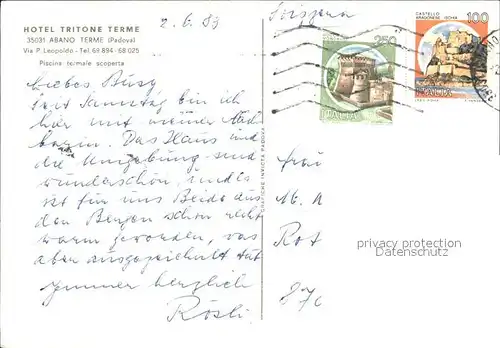 HOTEL TRITONE TERME
35031 ABANO TERME (Padova)
Via P. Leopoldo - Tel. 69.894 - 68.025
Piscina termale scoperta
2.6.89
Svizzera
250
ITALIA
CASTELLO ARAGONESE ISCHIA
100
ITALIA
Liebes
Seit Samstag bin ich
hier mit meiner
Das Haus und
die Umgebung sind
wunderschön, und es
ist für uns Beide aus
den Bergen schon recht
warm geworden, was
aber ausgezeichnet tut
Immer herzlich
Rösli
GRAFICHE INVICTA PADOVA
Frau
M. A
Rot
870
privacy protection
Datenschutz